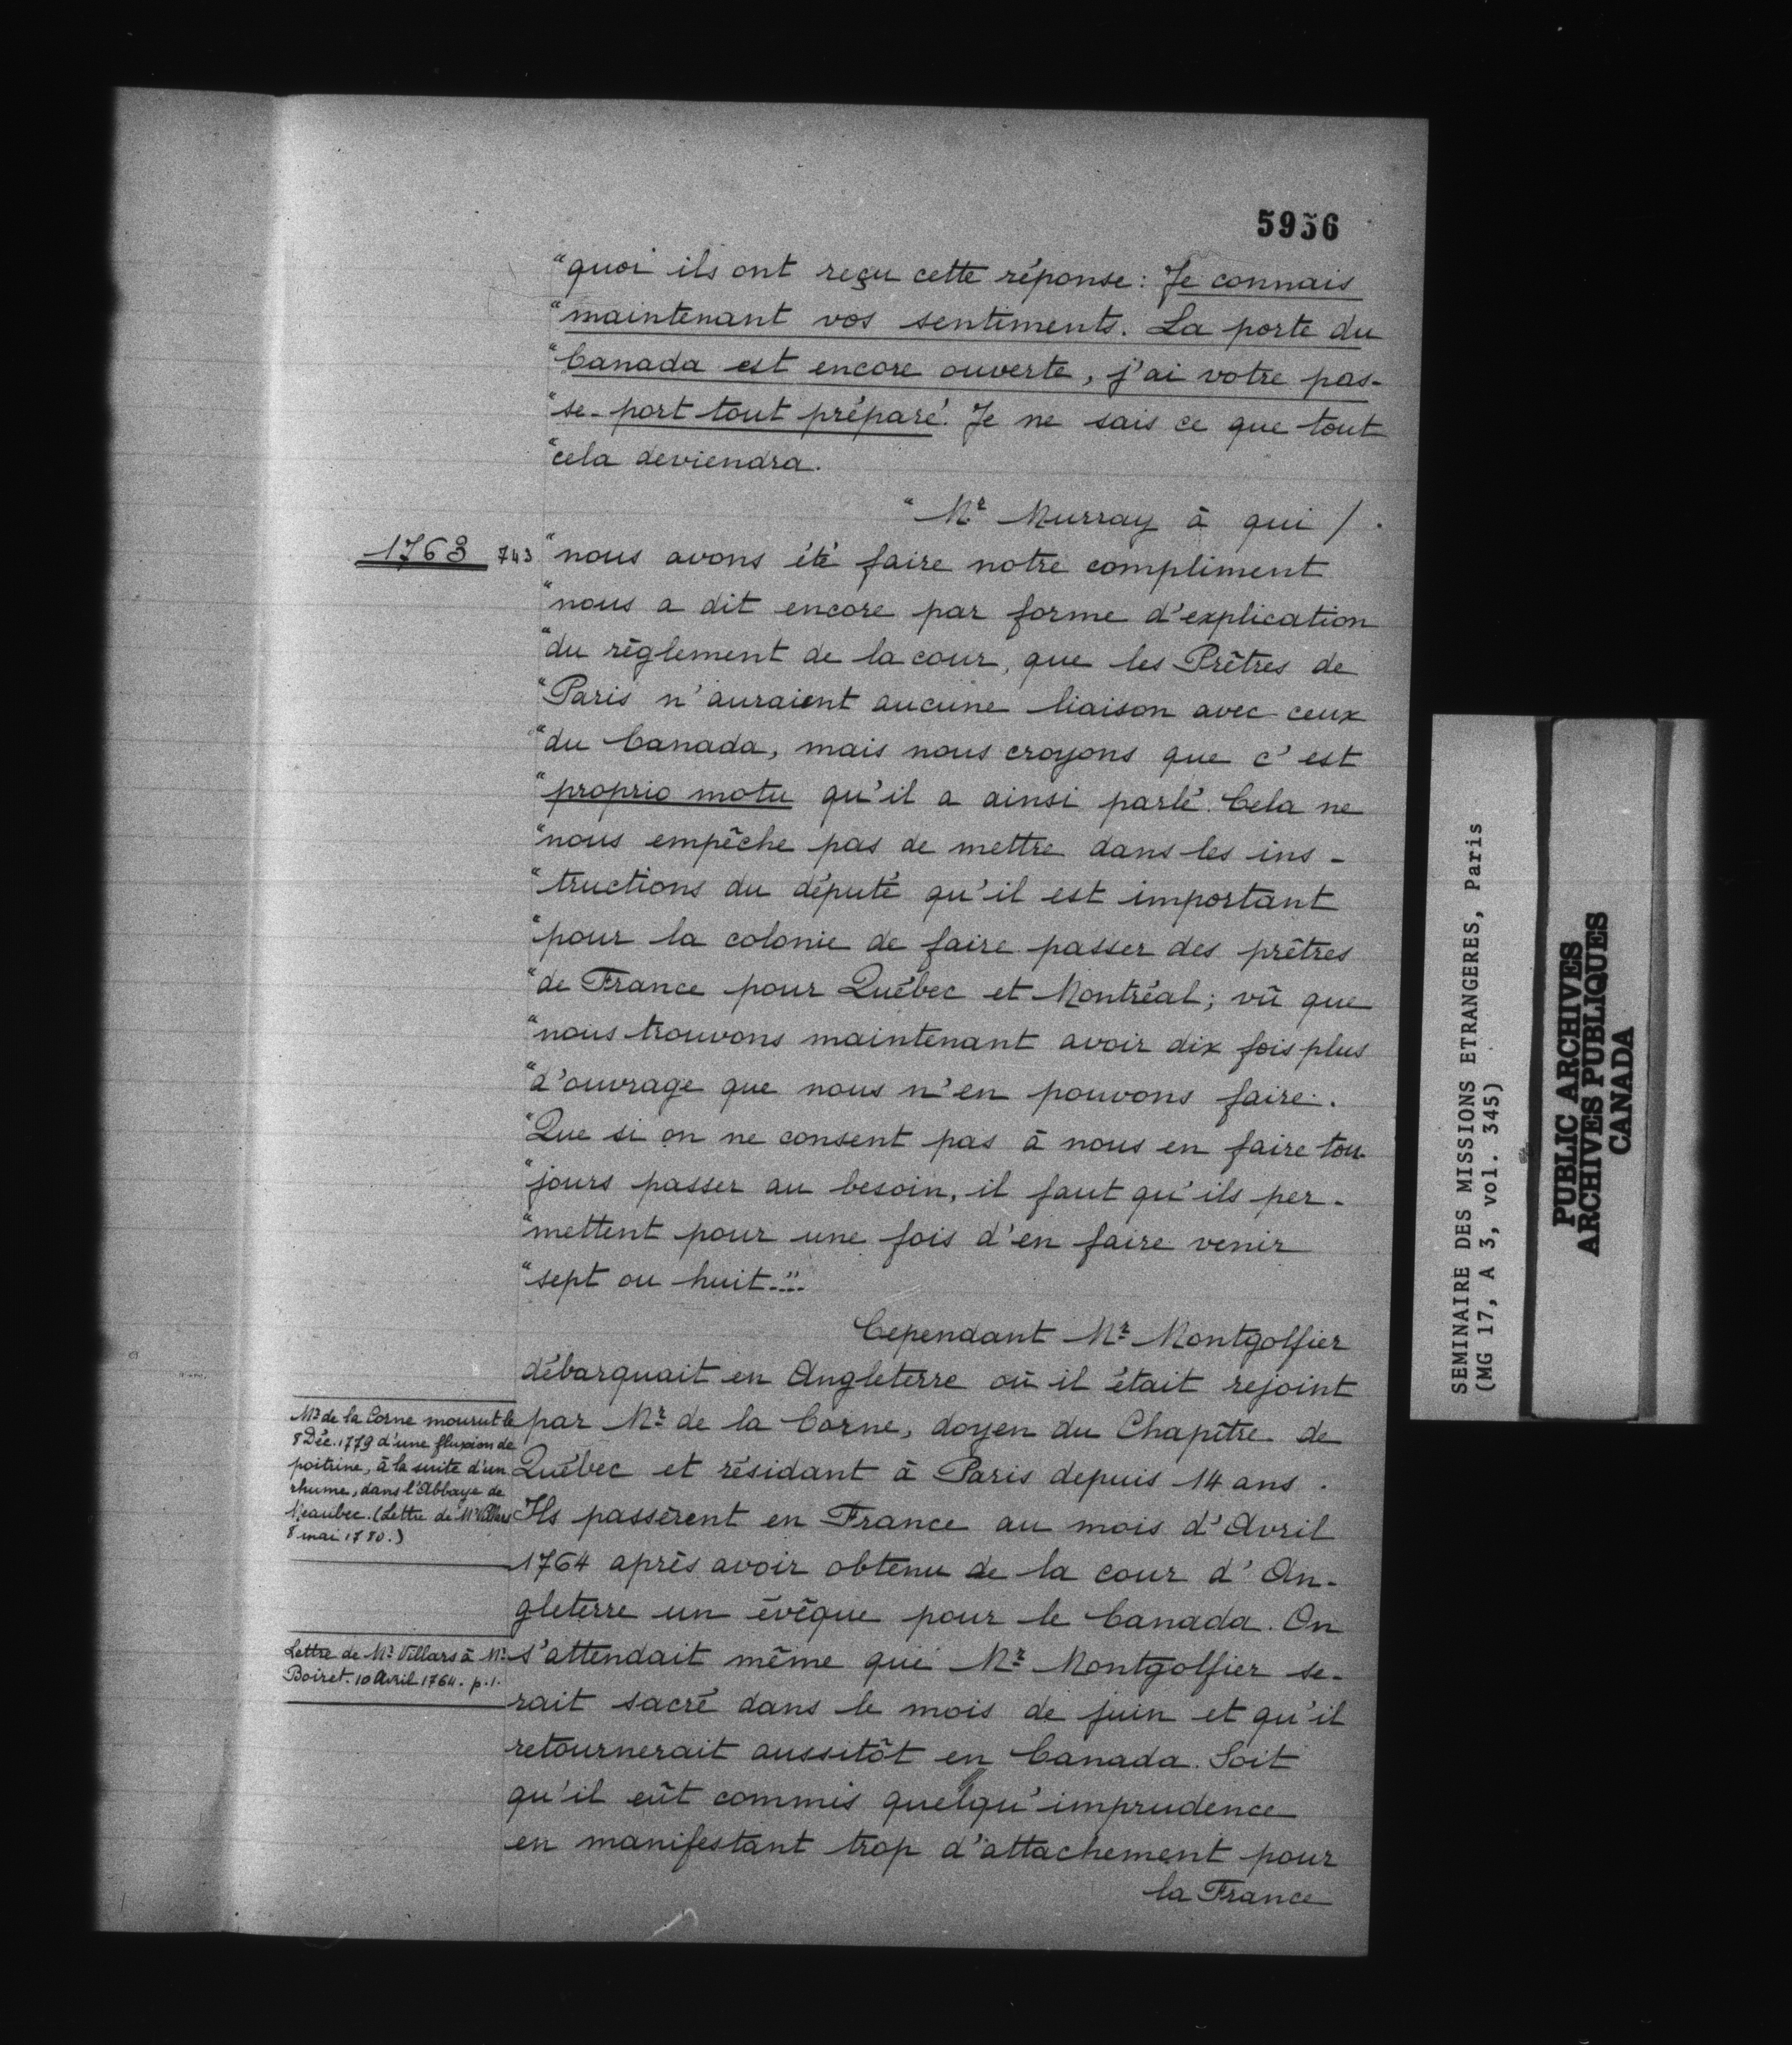 5956
"quoi ils ont reçu cette réponse: Je connais
"maintenant vos sentiments. La porte du
"Canada est encore ouverte, j'ai votre pas-
"se-port tout préparé. Je ne sais ce que tout
"cela deviendra.
"Mr Murray à qui /.
1763 743 "nous avons été faire notre compliment
"nous a dit encore par forme d'explication
"du règlement de la cour, que les Prêtres de
"Paris n'auraient aucune liaison avec ceux
"du Canada, mais nous croyons que c'est
"proprio motu qu'il a ainsi parlé. Cela ne
"nous empêche pas de mettre dans les ins-
"tructions du député qu'il est important
"pour la colonie de faire passer des prêtres
"de France pour Québec et Montréal; vû que
"nous trouvons maintenant avoir dix fois plus
"d'ouvrage que nous n'en pouvons faire.
"Que si on ne consent pas à nous en faire tou-
"jours passer au besoin, il faut qu'ils per-
"mettent pour une fois d'en faire venir
"sept ou huit..."
Cependant Mr Montgolfier
débarquait en Angleterre où il était rejoint
par Mr de la Corne, doyen du Chapître de
Québec et résidant à Paris depuis 14 ans.
Ils passèrent en France au mois d'Avril
1764 après avoir obtenu de la cour d'An-
gleterre un évêque pour le Canada. On
s'attendait même que Mr Montgolfier se-
rait sacré dans le mois de juin et qu'il
retournerait aussitôt en Canada. Soit
qu'il eût commis quelqu'imprudence
en manifestant trop d'attachement pour
la France
Mr de la Corne mourut le
8 Déc. 1779 d'une fluxion de
poitrine, à la suite d'un
rhume, dans l'Abbaye de
Meaubec. (Lettre de Mr Villars
8 mai 1780.)
Lettre de Mr Villars à Mr
Boiret. 10 Avril 1764. p.1.
SEMINAIRE DES MISSIONS ETRANGERES, Paris
(MG 17, A 3, vol. 345)
PUBLIC ARCHIVES
ARCHIVES PUBLIQUES
CANADA